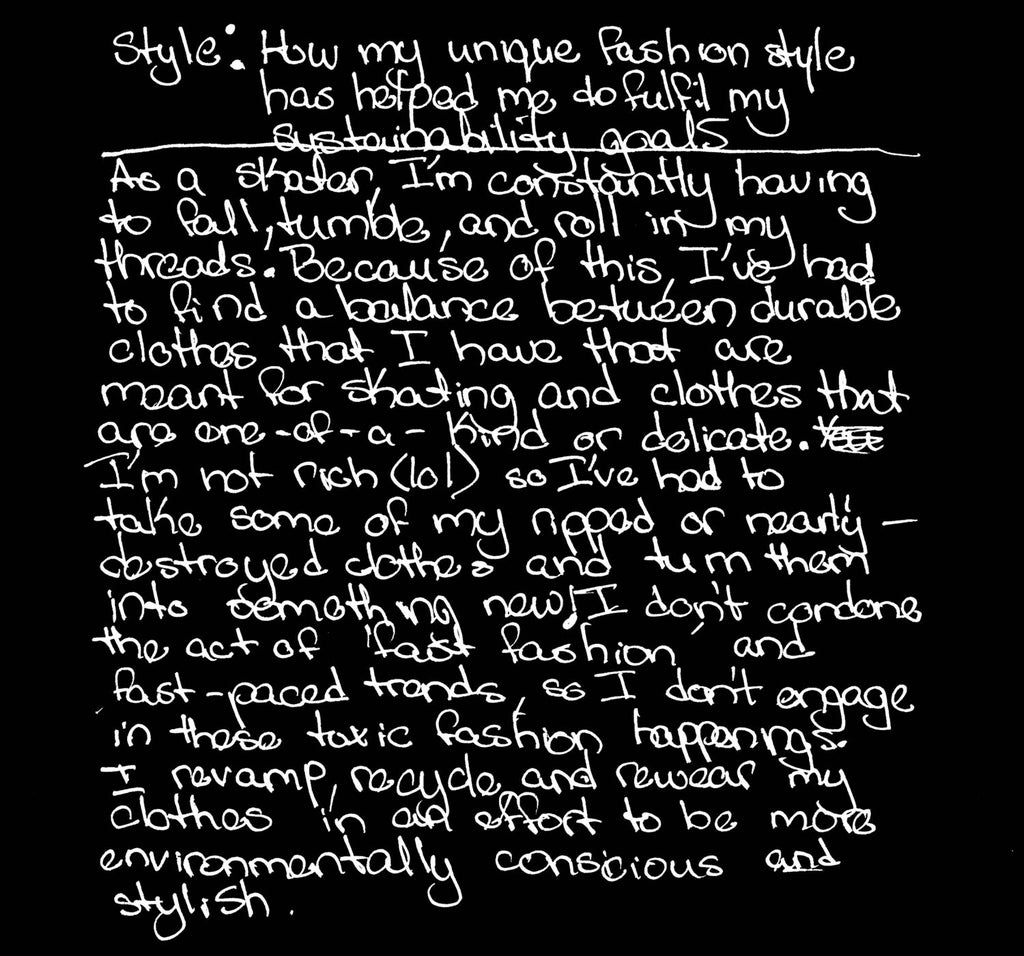 Style: How my unique fashion style
has helped me to fulfil my
sustainability goals
As a skater, I'm constantly having
to fall, tumble, and roll in my
threads. Because of this, I've had
to find a balance between durable
clothes that I have that are
meant for skating and clothes that
are one-of-a-kind or delicate.
I'm not rich (lol) so I've had to
take some of my ripped or nearly-
destroyed clothes and turn them
into something new! I don't condone
the act of 'fast fashion' and
fast-paced trends, so I don't engage
in these toxic fashion happenings.
I revamp, recycle, and rewear my
clothes in an effort to be more
environmentally conscious and
stylish.